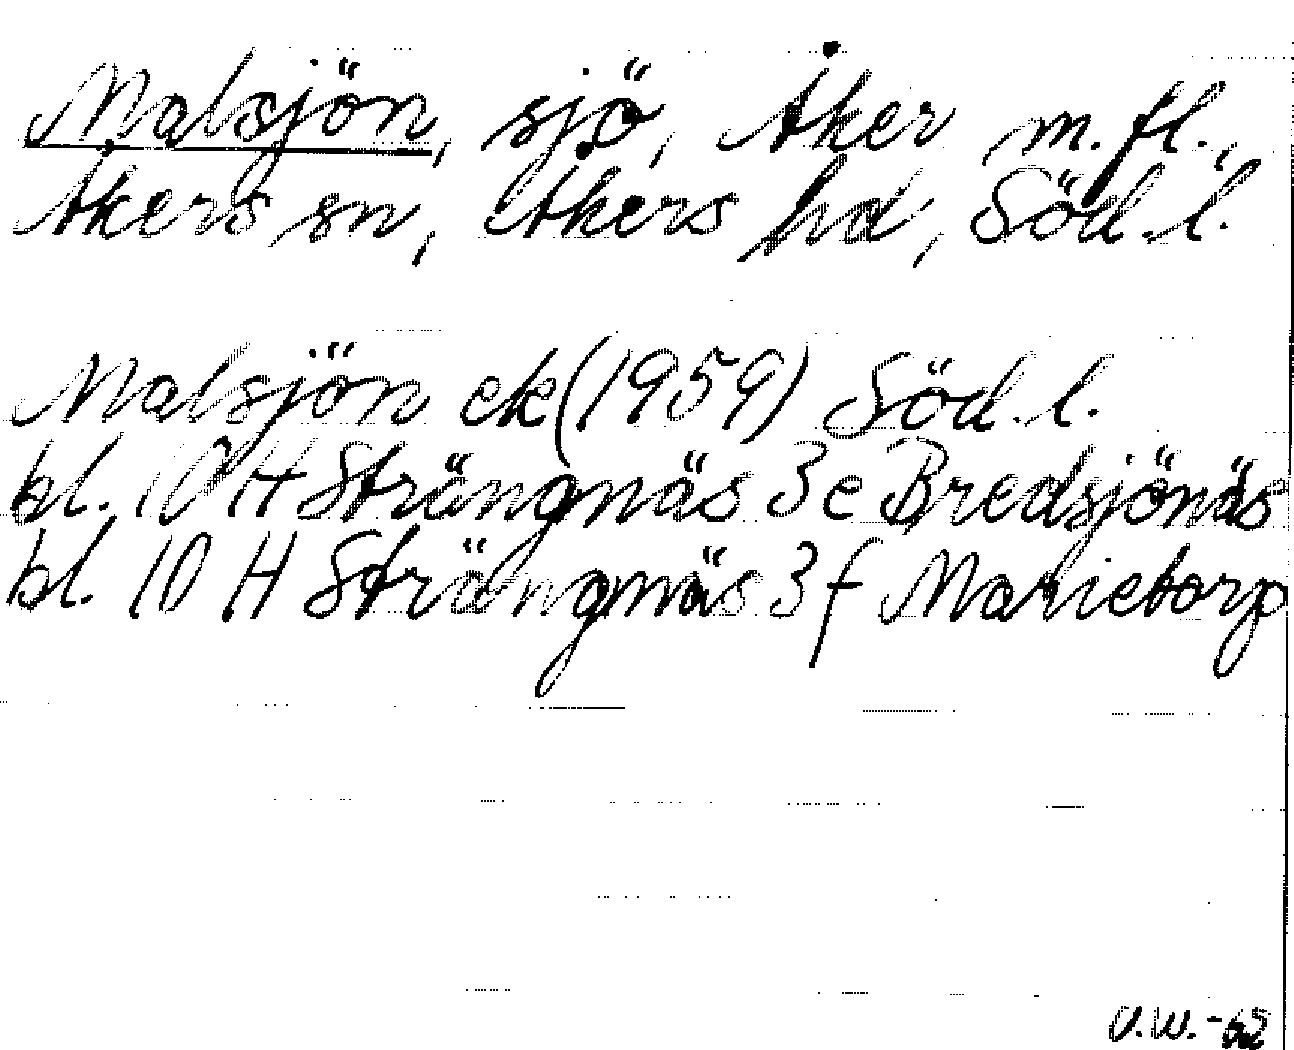 Malsjön, sjö, Åker m.fl.,
Åkers sn, Åkers hd, Söd.l.
Malsjön ek(1959) Söd.l.
bl. 10 H Strängnäs 3e Bredsjönäs
bl. 10 H Strängnäs 3f Marietorp
V.W.-62